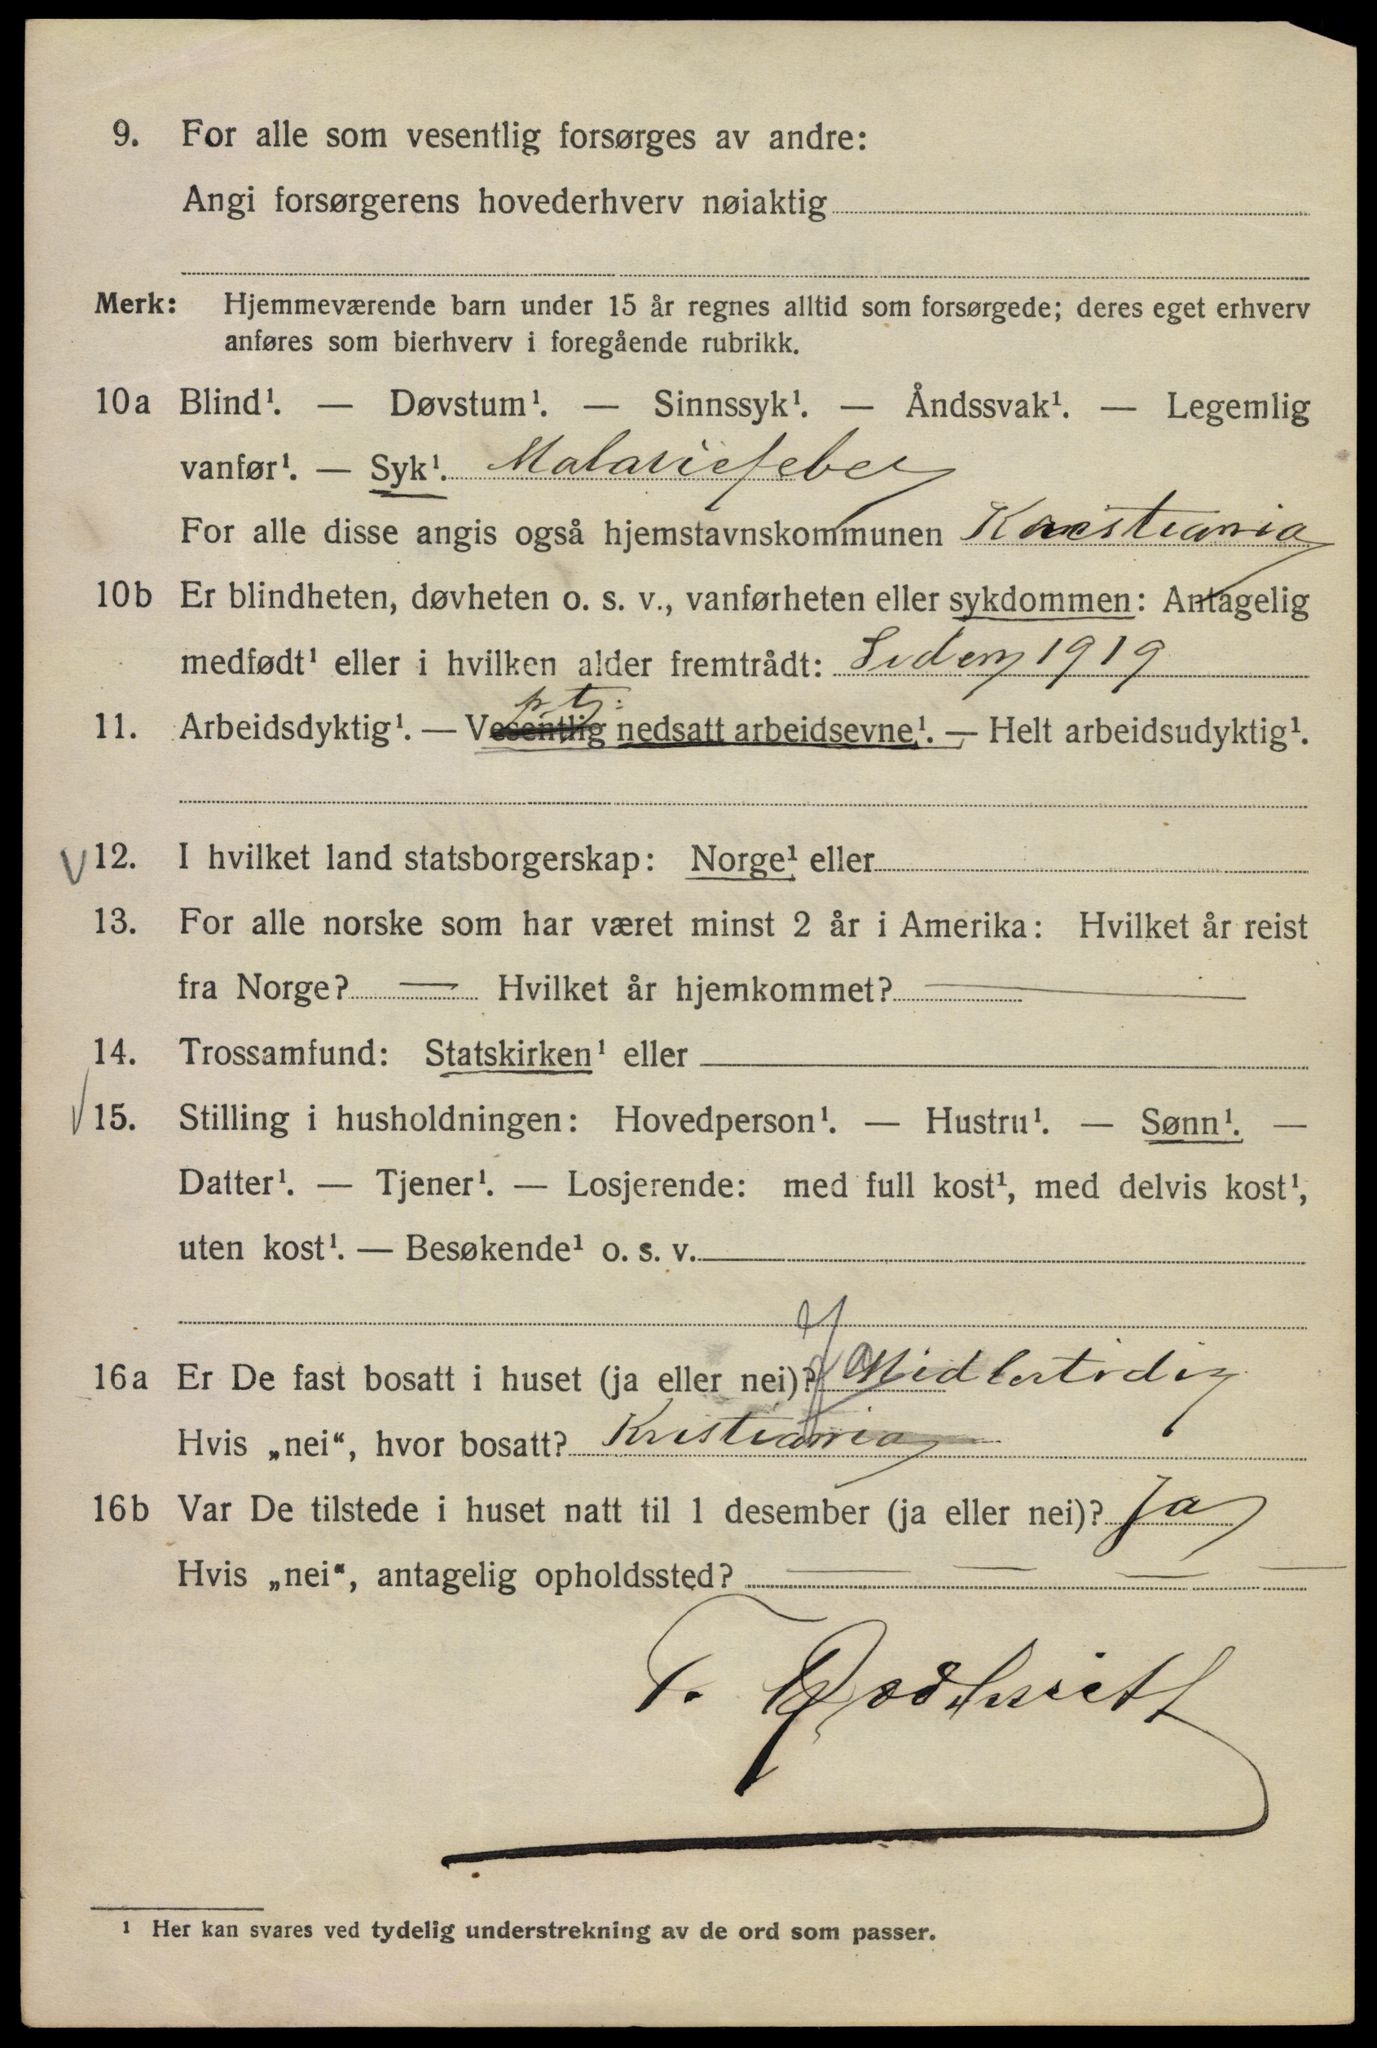 9. For alle som vesentlig forsørges av andre:
Angi forsørgerens hovederhverv nøiaktig
Merk: Hjemmeværende barn under 15 år regnes alltid som forsørgede; deres eget erhverv
anføres som bierhverv i foregående rubrikk.
10a Blind¹. — Døvstum¹. — Sinnssyk¹. — Åndssvak¹. — Legemlig
vanfør¹. — Syk¹. Malariefeber
For alle disse angis også hjemstavnskommunen Kristiania
10b Er blindheten, døvheten o. s. v., vanførheten eller sykdommen: Antagelig
medfødt¹ eller i hvilken alder fremtrådt: Siden 1919
p. t.
11. Arbeidsdyktig¹. — Vesentlig nedsatt arbeidsevne¹. — Helt arbeidsudyktig¹.
12. I hvilket land statsborgerskap: Norge¹ eller
13. For alle norske som har været minst 2 år i Amerika: Hvilket år reist
fra Norge? — Hvilket år hjemkommet? —
14. Trossamfund: Statskirken¹ eller
15. Stilling i husholdningen: Hovedperson¹. — Hustru¹. — Sønn¹. —
Datter¹. — Tjener¹. — Losjerende: med full kost¹, med delvis kost¹,
uten kost¹. — Besøkende¹ o. s. v.
16a Er De fast bosatt i huset (ja eller nei)? Midlertidig
Hvis „nei“, hvor bosatt? Kristiania
16b Var De tilstede i huset natt til 1 desember (ja eller nei)? Ja
Hvis „nei“, antagelig opholdssted? — — — —
T.
¹ Her kan svares ved tydelig understrekning av de ord som passer.